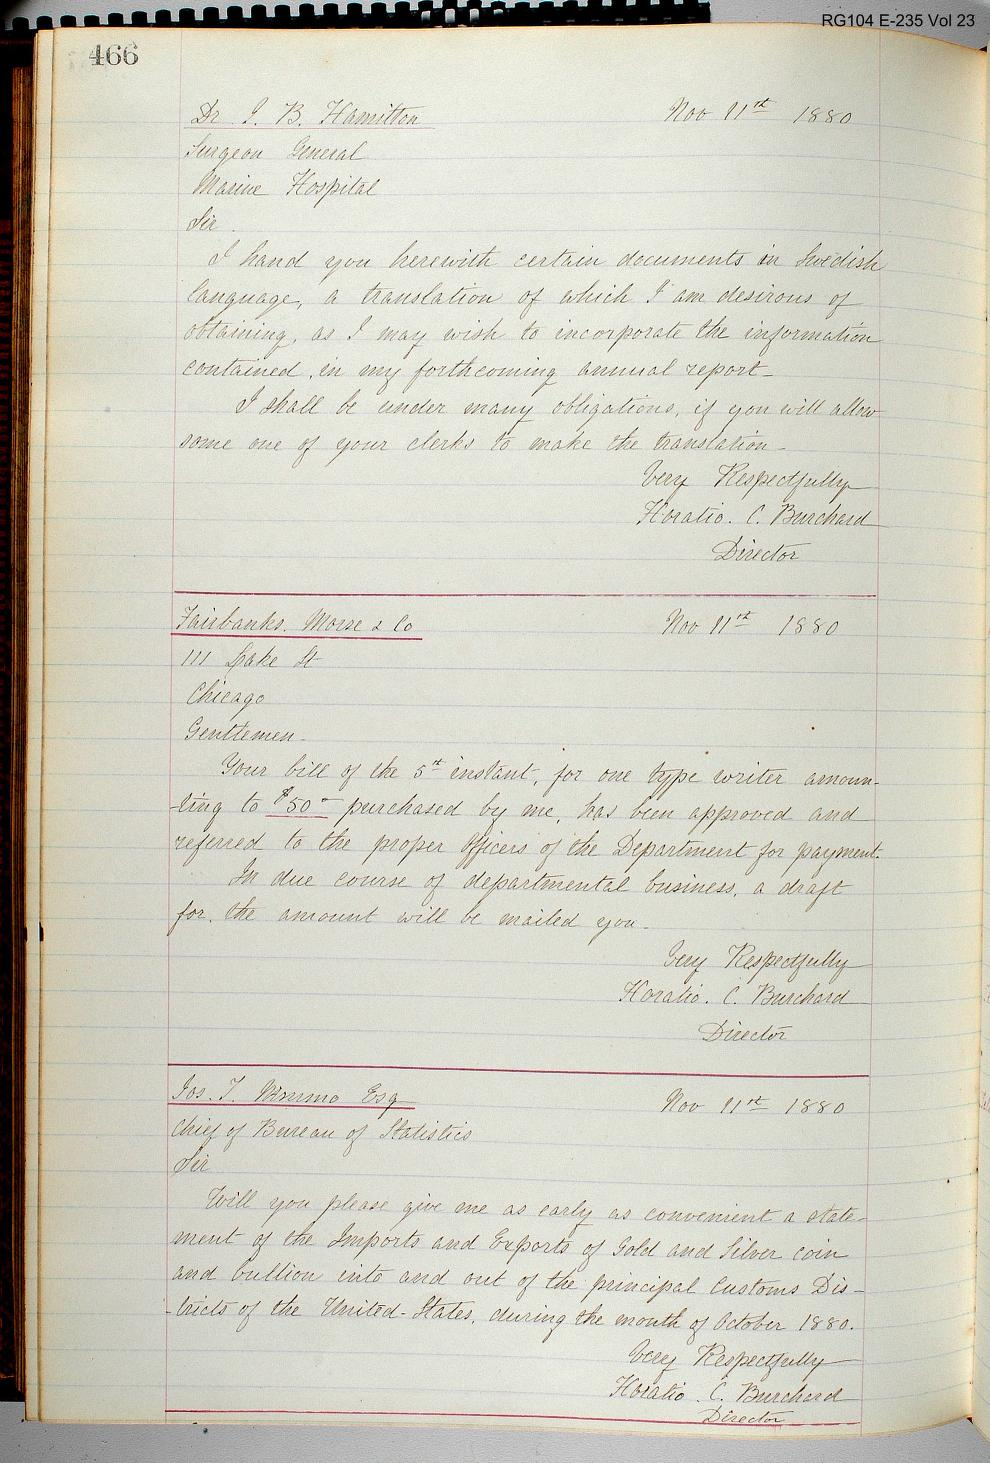 RG104 E-235 Vol 23
466
Dr J. B. Hamilton Nov 11th 1880
Surgeon General
Marine Hospital
Sir.
I hand you herewith certain documents in Swedish
language, a translation of which I am desirous of
obtaining, as I may wish to incorporate the information
contained, in my forthcoming annual report_
I shall be under many obligations, if you will allow
some one of your clerks to make the translation_
Very Respectfully
Horatio. C. Burchard
Director
Fairbanks. Morse & Co Nov 11th 1880
111 Lake St
Chicago
Gentlemen.
Your bill of the 5th instant, for one type writer amoun-
-ting to $50- purchased by me, has been approved and
referred to the proper officers of the Department for payment.
In due course of departmental business, a draft
for, the amount will be mailed you_
Very Respectfully
Horatio. C. Burchard
Director
Jos. T. Nimmo Esq Nov 11th 1880
Chief of Bureau of Statistics
Sir
Will you please give me as early as convenient a state-
ment of the Imports and Exports of Gold and Silver coin
and bullion into and out of the principal Customs Dis-
-tricts of the United-States, during the month of October 1880.
Very Respectfully
Horatio. C. Burchard
Director